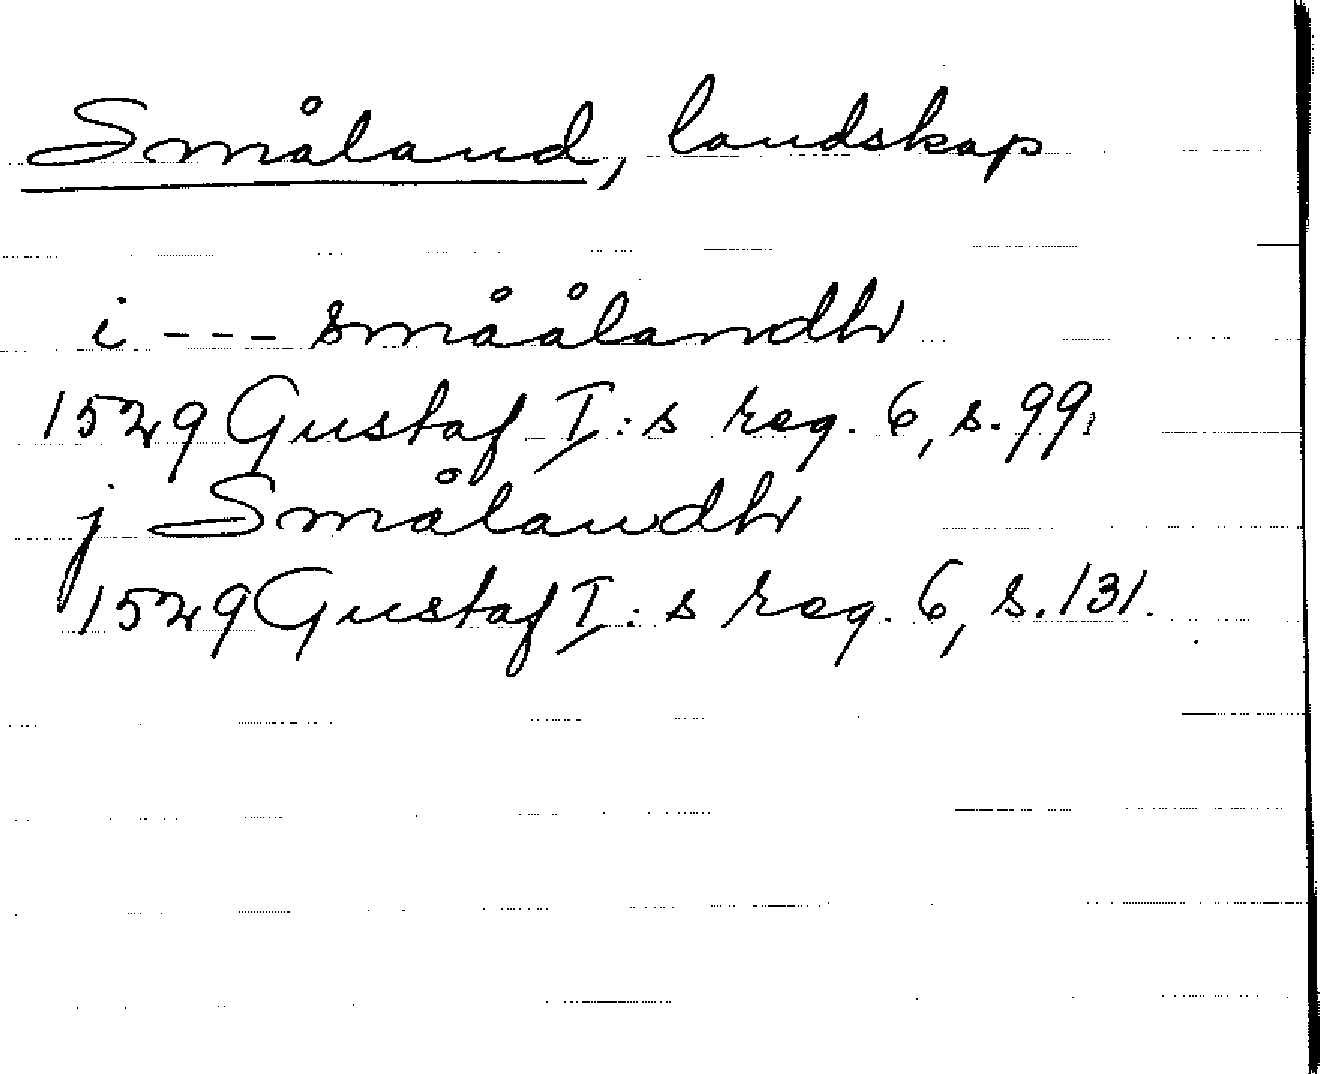 Småland, landskap
i --- småålandh
1529 Gustaf I:s reg. 6, s. 99.
j Smålandh
1529 Gustaf I:s reg. 6, s. 131.